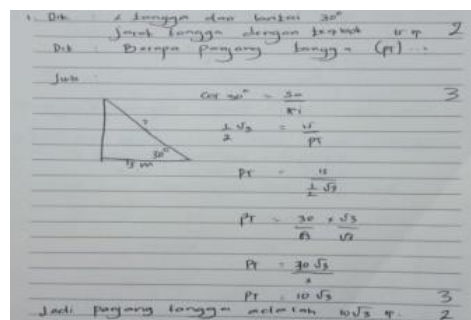 1. Dik : ∠ tangga dan lantai 30°
Jarak tangga dengan 15 m 2
Dit : Berapa panjang tangga (PT) ...
Jwb :
cos 30° = sa/mi 3
1/2 √3 = 15/PT
30°
15 m
PT = 15 / 1/2 √3
PT = 30/√3 × √3/√3
PT = 30 √3 / 3
PT = 10 √3 3
Jadi panjang tangga adalah 10√3 m. 2